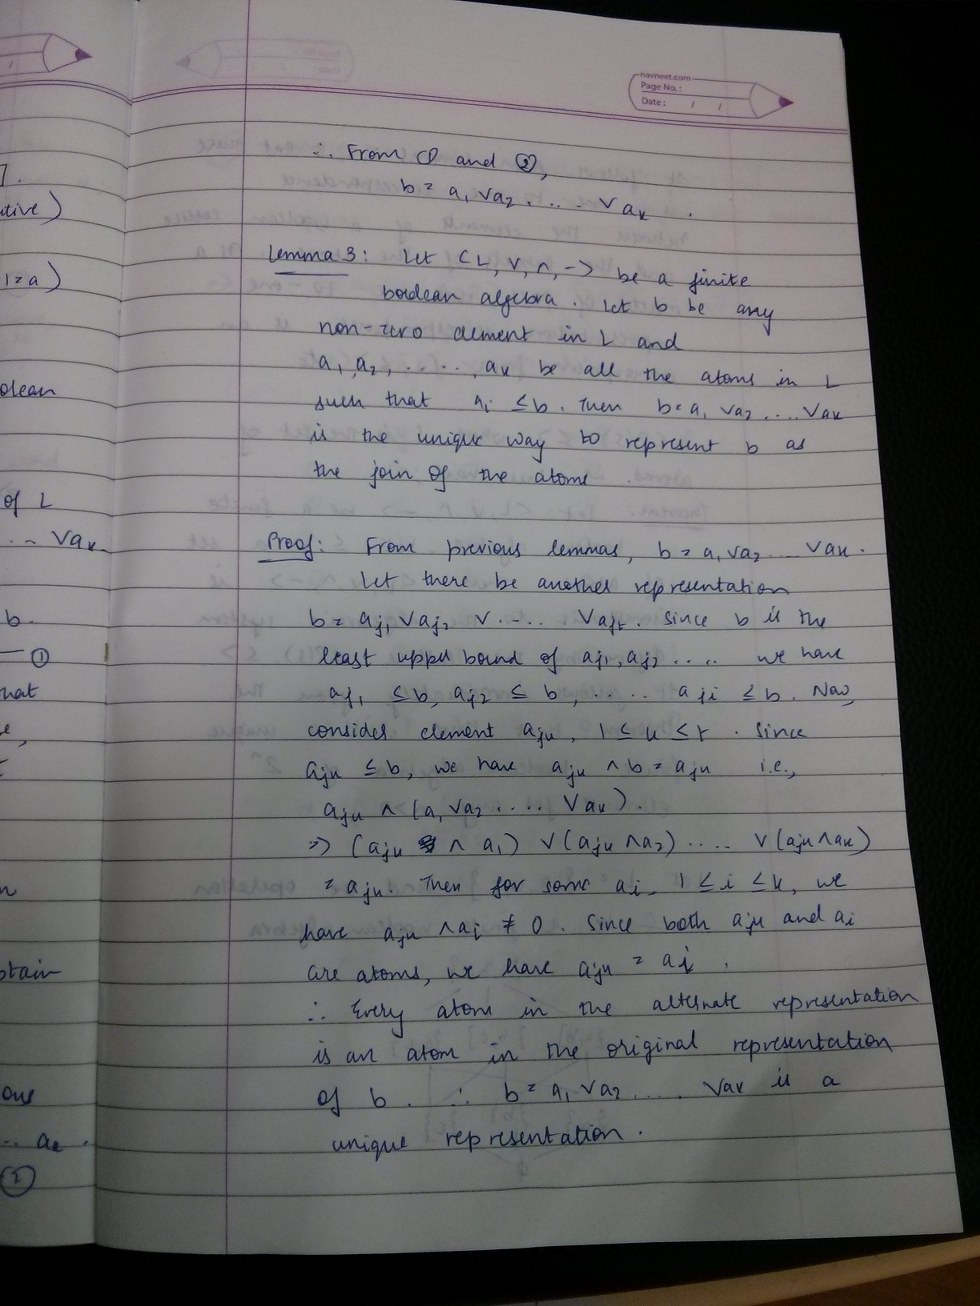 navneet.com
Page No.:
Date: / /
∴ From ① and ②,
b = a₁ ∨ a₂ .... ∨ aₖ .
Lemma 3: Let <L, ∨, ∧, -> be a finite
boolean algebra. Let b be any
non-zero element in L and
a₁, a₂, ....., aₖ be all the atoms in L
such that aᵢ ≤ b. Then b = a₁ ∨ a₂ .... ∨ aₖ
is the unique way to represent b as
the join of the atoms.
Proof: From previous lemmas, b = a₁ ∨ a₂ .... ∨ aₖ.
Let there be another representation
b = aj₁ ∨ aj₂ ∨ ..... ∨ ajₜ. Since b is the
least upper bound of aj₁, aj₂ .... we have
aj₁ ≤ b, aj₂ ≤ b, ..... ajᵢ ≤ b. Now,
consider element ajᵤ, 1 ≤ u ≤ t. Since
ajᵤ ≤ b, we have ajᵤ ∧ b = ajᵤ i.e.,
ajᵤ ∧ (a₁ ∨ a₂ ..... ∨ aₖ).
⇒ (ajᵤ ∧ a₁) ∨ (ajᵤ ∧ a₂) .... ∨ (ajᵤ ∧ aₖ)
= ajᵤ. Then for some aᵢ, 1 ≤ i ≤ k, we
have ajᵤ ∧ aᵢ ≠ 0. Since both ajᵤ and aᵢ
are atoms, we have ajᵤ = aᵢ.
∴ Every atom in the alternate representation
is an atom in the original representation
of b. ∴ b = a₁ ∨ a₂ .... ∨ aₖ is a
unique representation.
of L
.. ∨ aₖ
b.
— ①
②